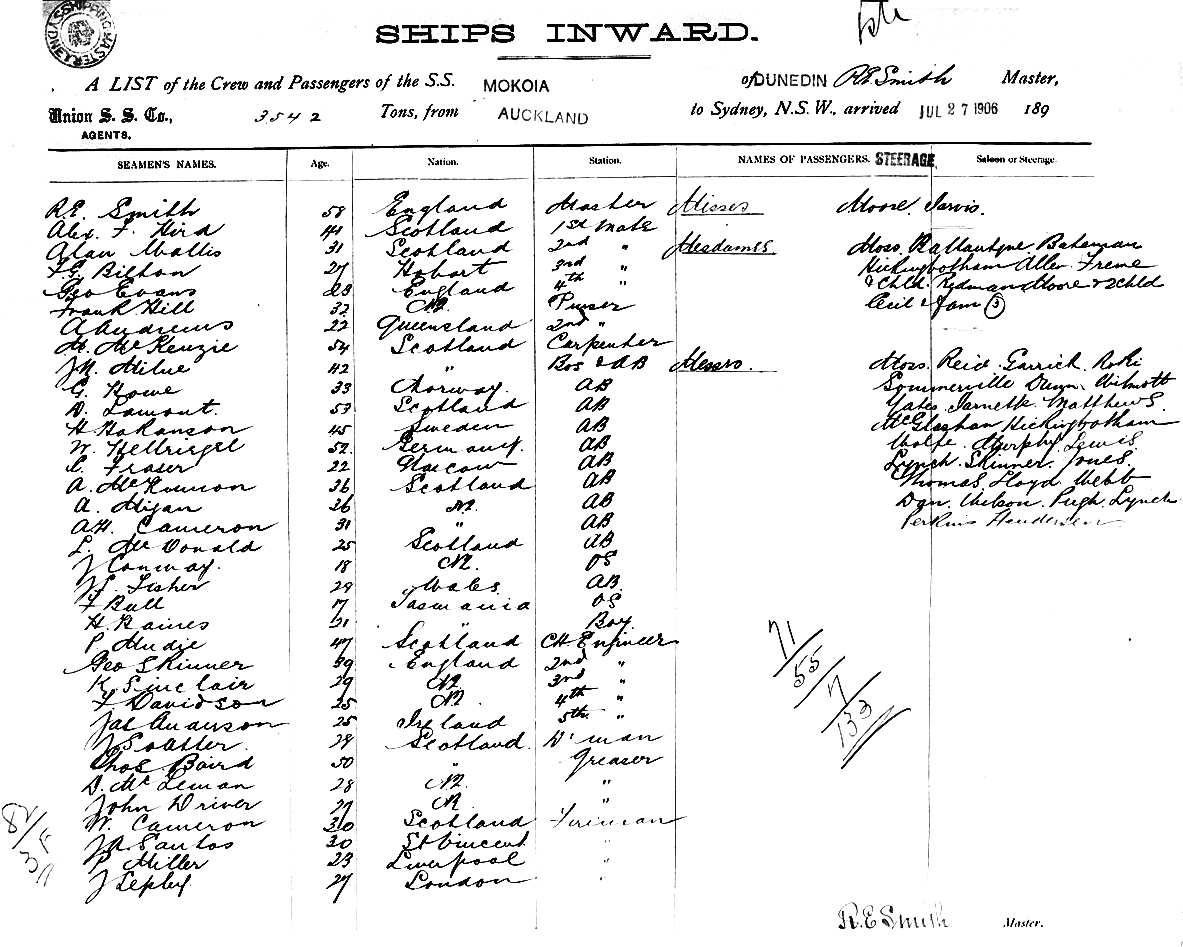 SYDNEY SHIPPING MASTER
SHIPS INWARD.
A LIST of the Crew and Passengers of the S.S. MOKOIA of DUNEDIN R.E. Smith Master,
Union S. S. Co., 3542 Tons, from AUCKLAND to Sydney, N.S.W., arrived JUL 27 1906 189
AGENTS.
SEAMEN'S NAMES. Age. Nation. Station. NAMES OF PASSENGERS. STEERAGE Saloon or Steerage.
R.E. Smith 58 England Master Misses Moore. Jarvis.
Alex. F. Hird 44 Scotland 1st Mate
Alan Wallis 31 Scotland 2nd " Mesdames Moss Ballantyne Bateman
F.G. Bilton 27 Hobart 3rd " Hickingbotham Allen Freme
Geo Evans 28 England 4th " & Chld. Redman Moore & 2 Chld
Frank Hill 32 NZ Purser Cecil & fam (3)
A Andrews 22 Queensland 2nd "
H. McKenzie 54 Scotland Carpenter
J.M. Milne 42 " Bos & AB Messrs. Moss. Reid Garrick
G. Howe 33 Norway. AB Sommerville Dunn Wilmott
D. Lamont. 53 Scotland AB Yates. Matthews.
H Hakanson 45 Sweden AB McGlashan Hickingbotham
W. Hellriegel 52. Germany. AB Wolfe. Murphy Lewis
Fraser 22 Glascow AB Lynch. Skinner. Jones.
A. McKinnon 26 Scotland AB Thomas Lloyd Webb
A. 26 NZ AB Dan. Wilson. Pugh. Lynch
A.H. Cameron 31 " AB Perkins Henderson
L. McDonald 25 Scotland AB
J Conway. 18 NZ. OS
Fisher 29 Wales. AB.
F Bull 17 Tasmania OS
H. Raines 21 " Boy
P Mudie 47 Scotland CH. Engineer
Geo Skinner 39 England 2nd "
K. Sinclair 29 NZ 3rd "
F Davidson 25 NZ. 4th "
Jas Anderson 25 Ireland 5th "
J Soutter. 29 Scotland D'man
Thos Baird 50 " Greaser
D. McLeman 28 NZ "
John Driver 27 NZ "
W. Cameron 30 Scotland Fireman
Santos 30 St Vincent "
P Miller 23 Liverpool "
J Sepley 27 London "
71/
55/
7/
133
82/
R.E Smith Master.